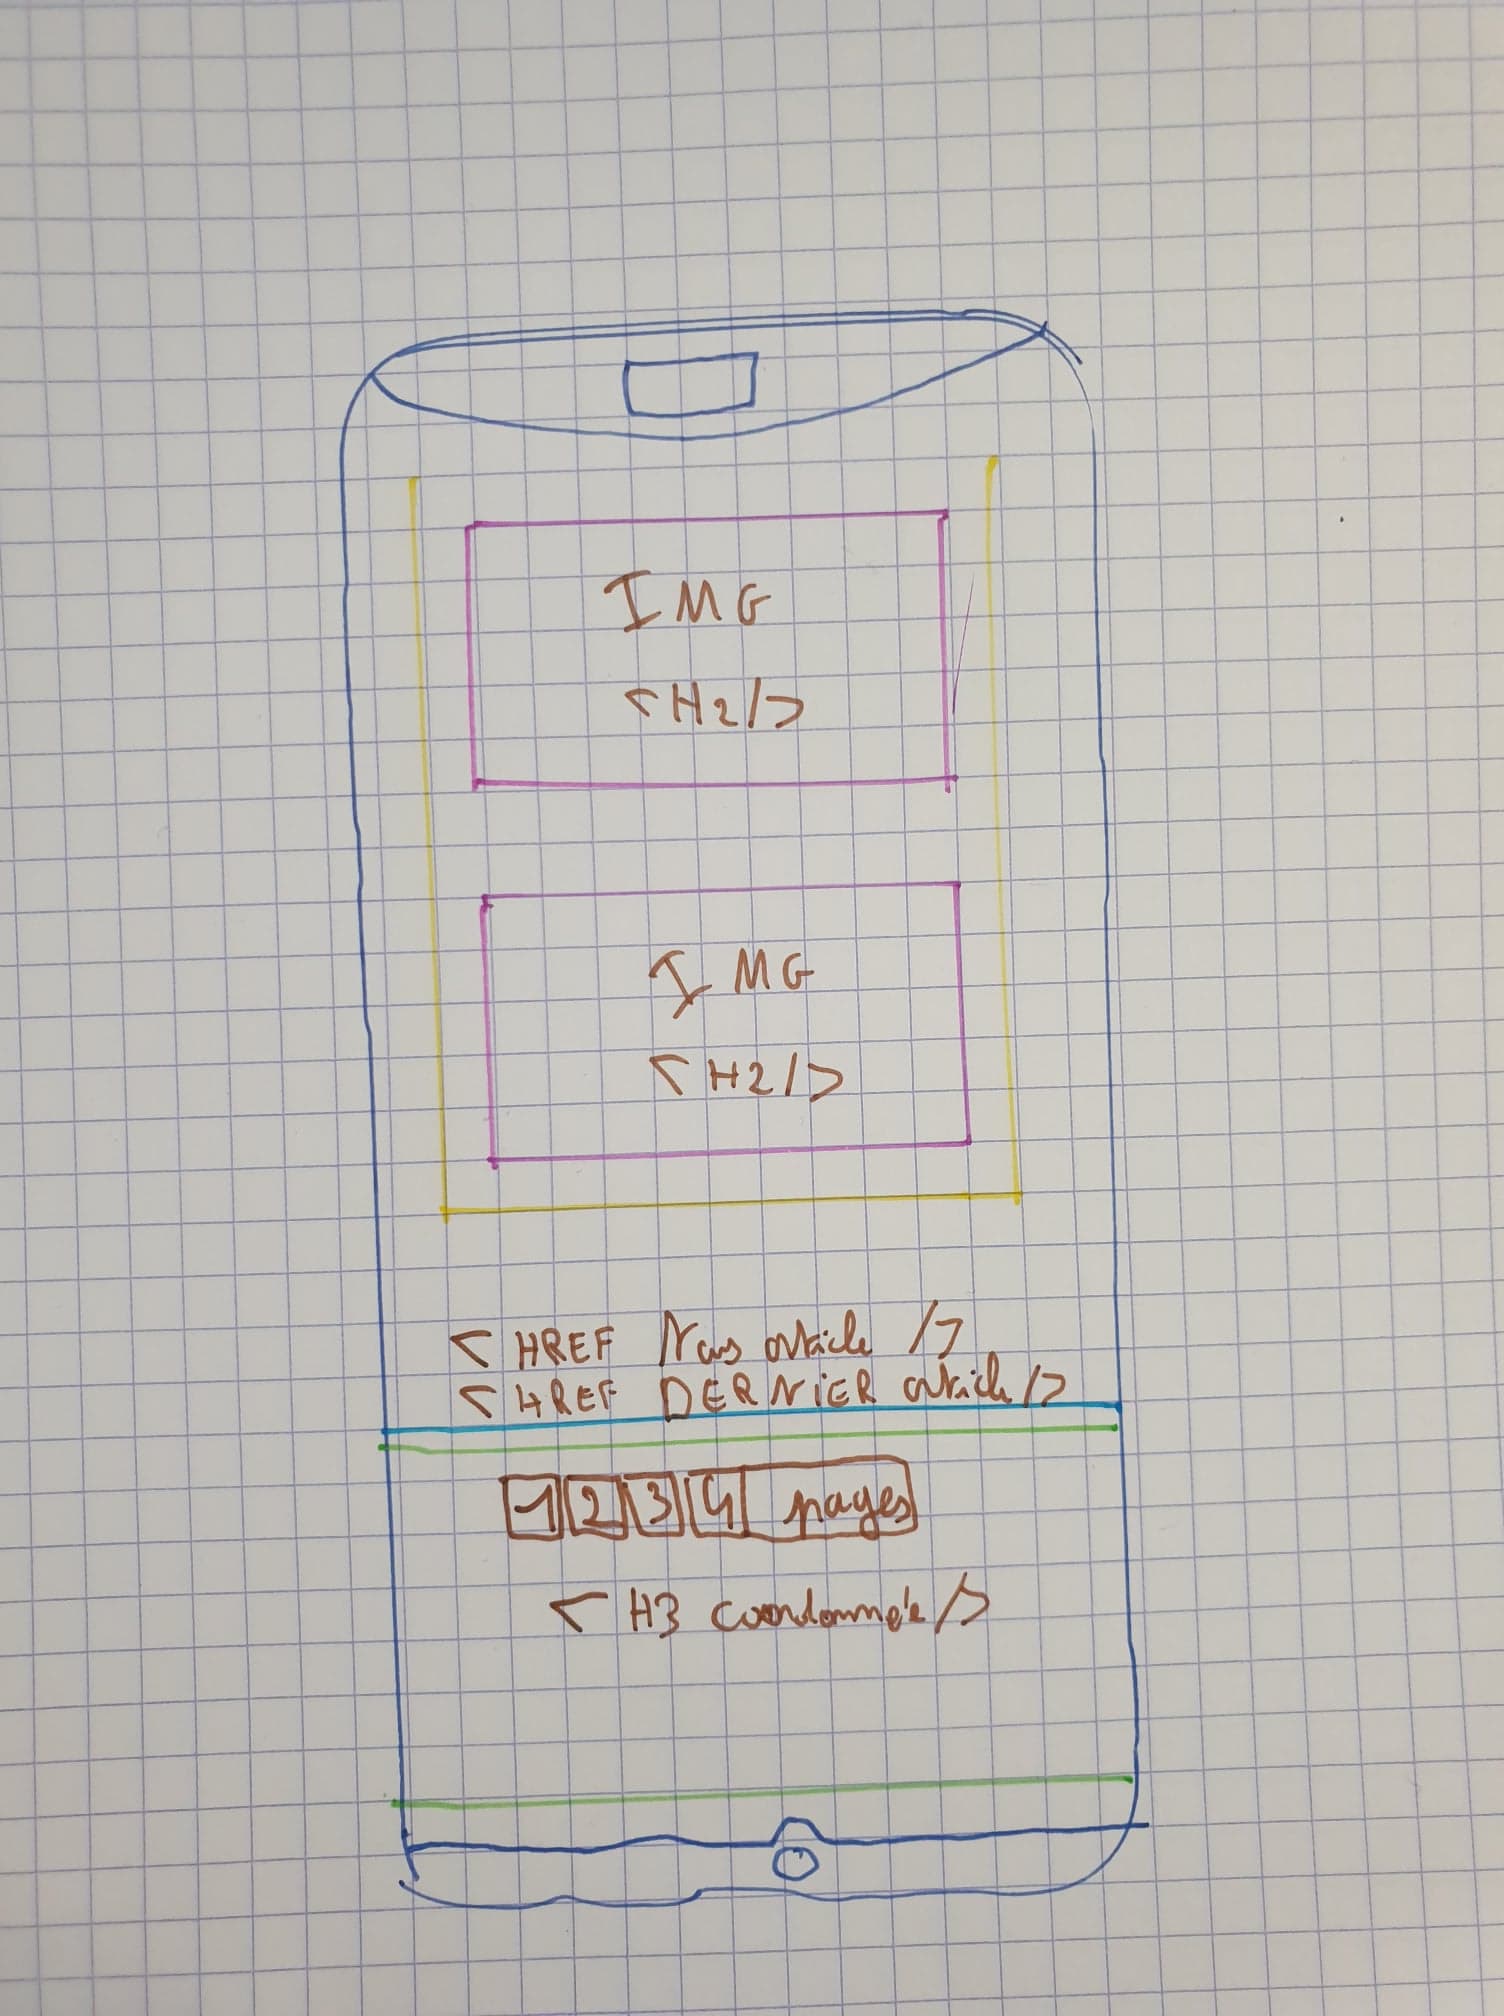 IMG
<H2/>
IMG
<H2/>
< HREF Nos article />
< HREF DERNIER article />
1 2 3 4 pages
< H3 coordonnée />